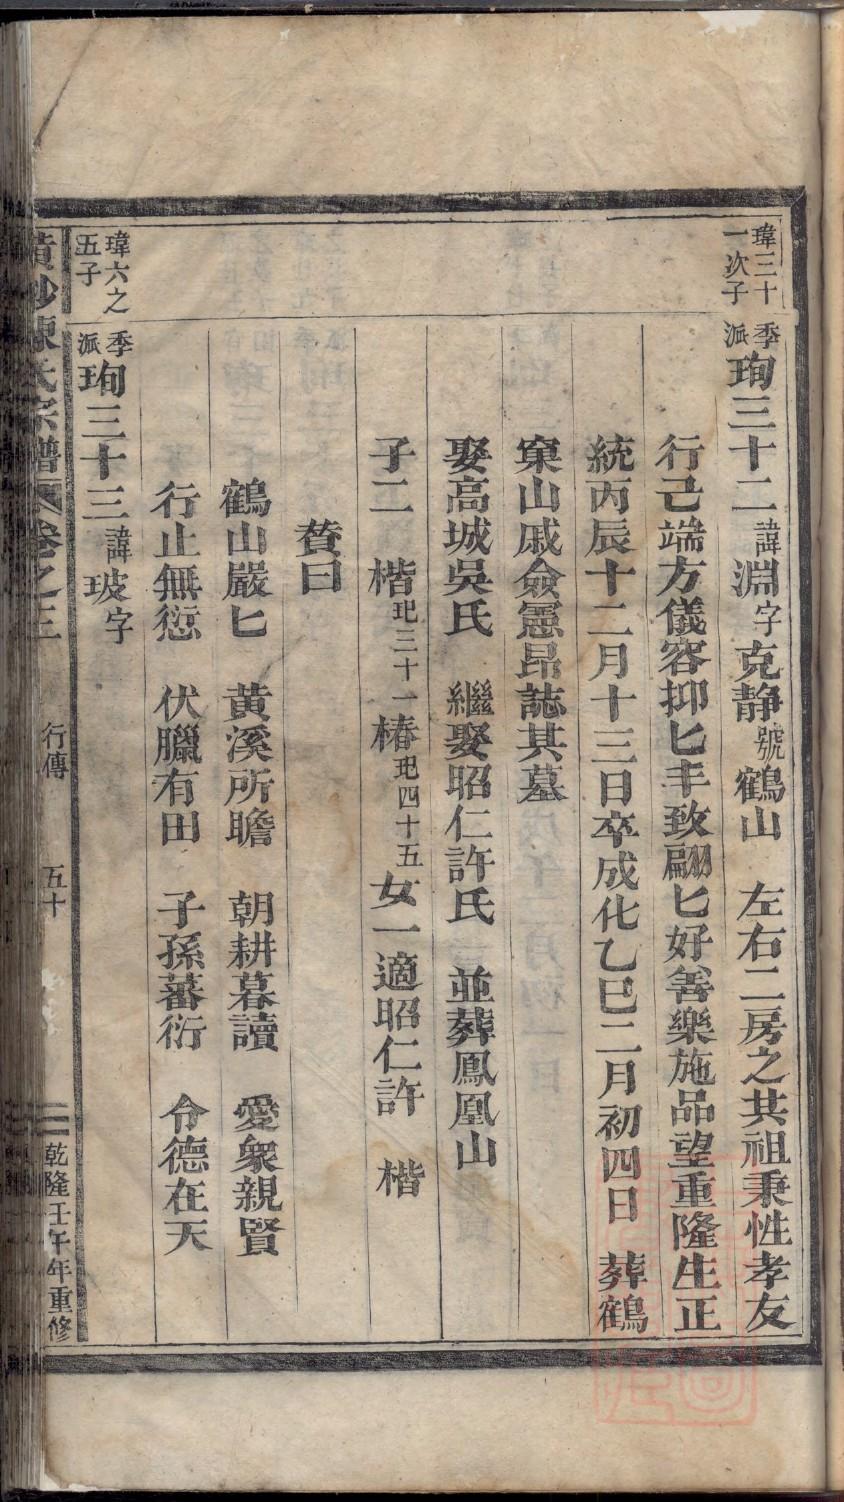 瑋三十
一次子
季派珣三十二諱淵字克静號鶴山　左右二房之共祖秉性孝友
行己端方儀容抑匕丰致翩匕好善樂施品望重隆生正
統丙辰十二月十三日卒成化乙巳二月初四日　葬鶴
窠山戚僉憲昂誌其墓
娶高城吳氏　繼娶昭仁許氏　並葬鳳凰山
子二　楷玘三十一椿玘四十五女一適昭仁許　楷
贊曰
鶴山嚴匕　黄溪所瞻　朝耕暮讀　愛衆親賢
行止無愆　伏臘有田　子孫蕃衍　令德在天
瑋六之
五子
季派珣三十三諱玻字
陳氏宗譜　卷之三　行傳　五十　乾隆壬午年重修